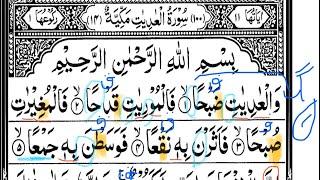 اٰیَاتُهَا ١١ (١٠٠) سُوْرَةُ الْعٰدِیٰتِ مَكِّیَّةٌ (١٤) رُكُوْعُهَا ١
بِسْمِ اللّٰهِ الرَّحْمٰنِ الرَّحِیْمِ
وَالْعٰدِیٰتِ ضَبْحًا ۙ١ فَالْمُوْرِیٰتِ قَدْحًا ۙ٢ فَالْمُغِیْرٰتِ
صُبْحًا ۙ٣ فَاَثَرْنَ بِهٖ نَقْعًا ۙ٤ فَوَسَطْنَ بِهٖ جَمْعًا ۙ٥